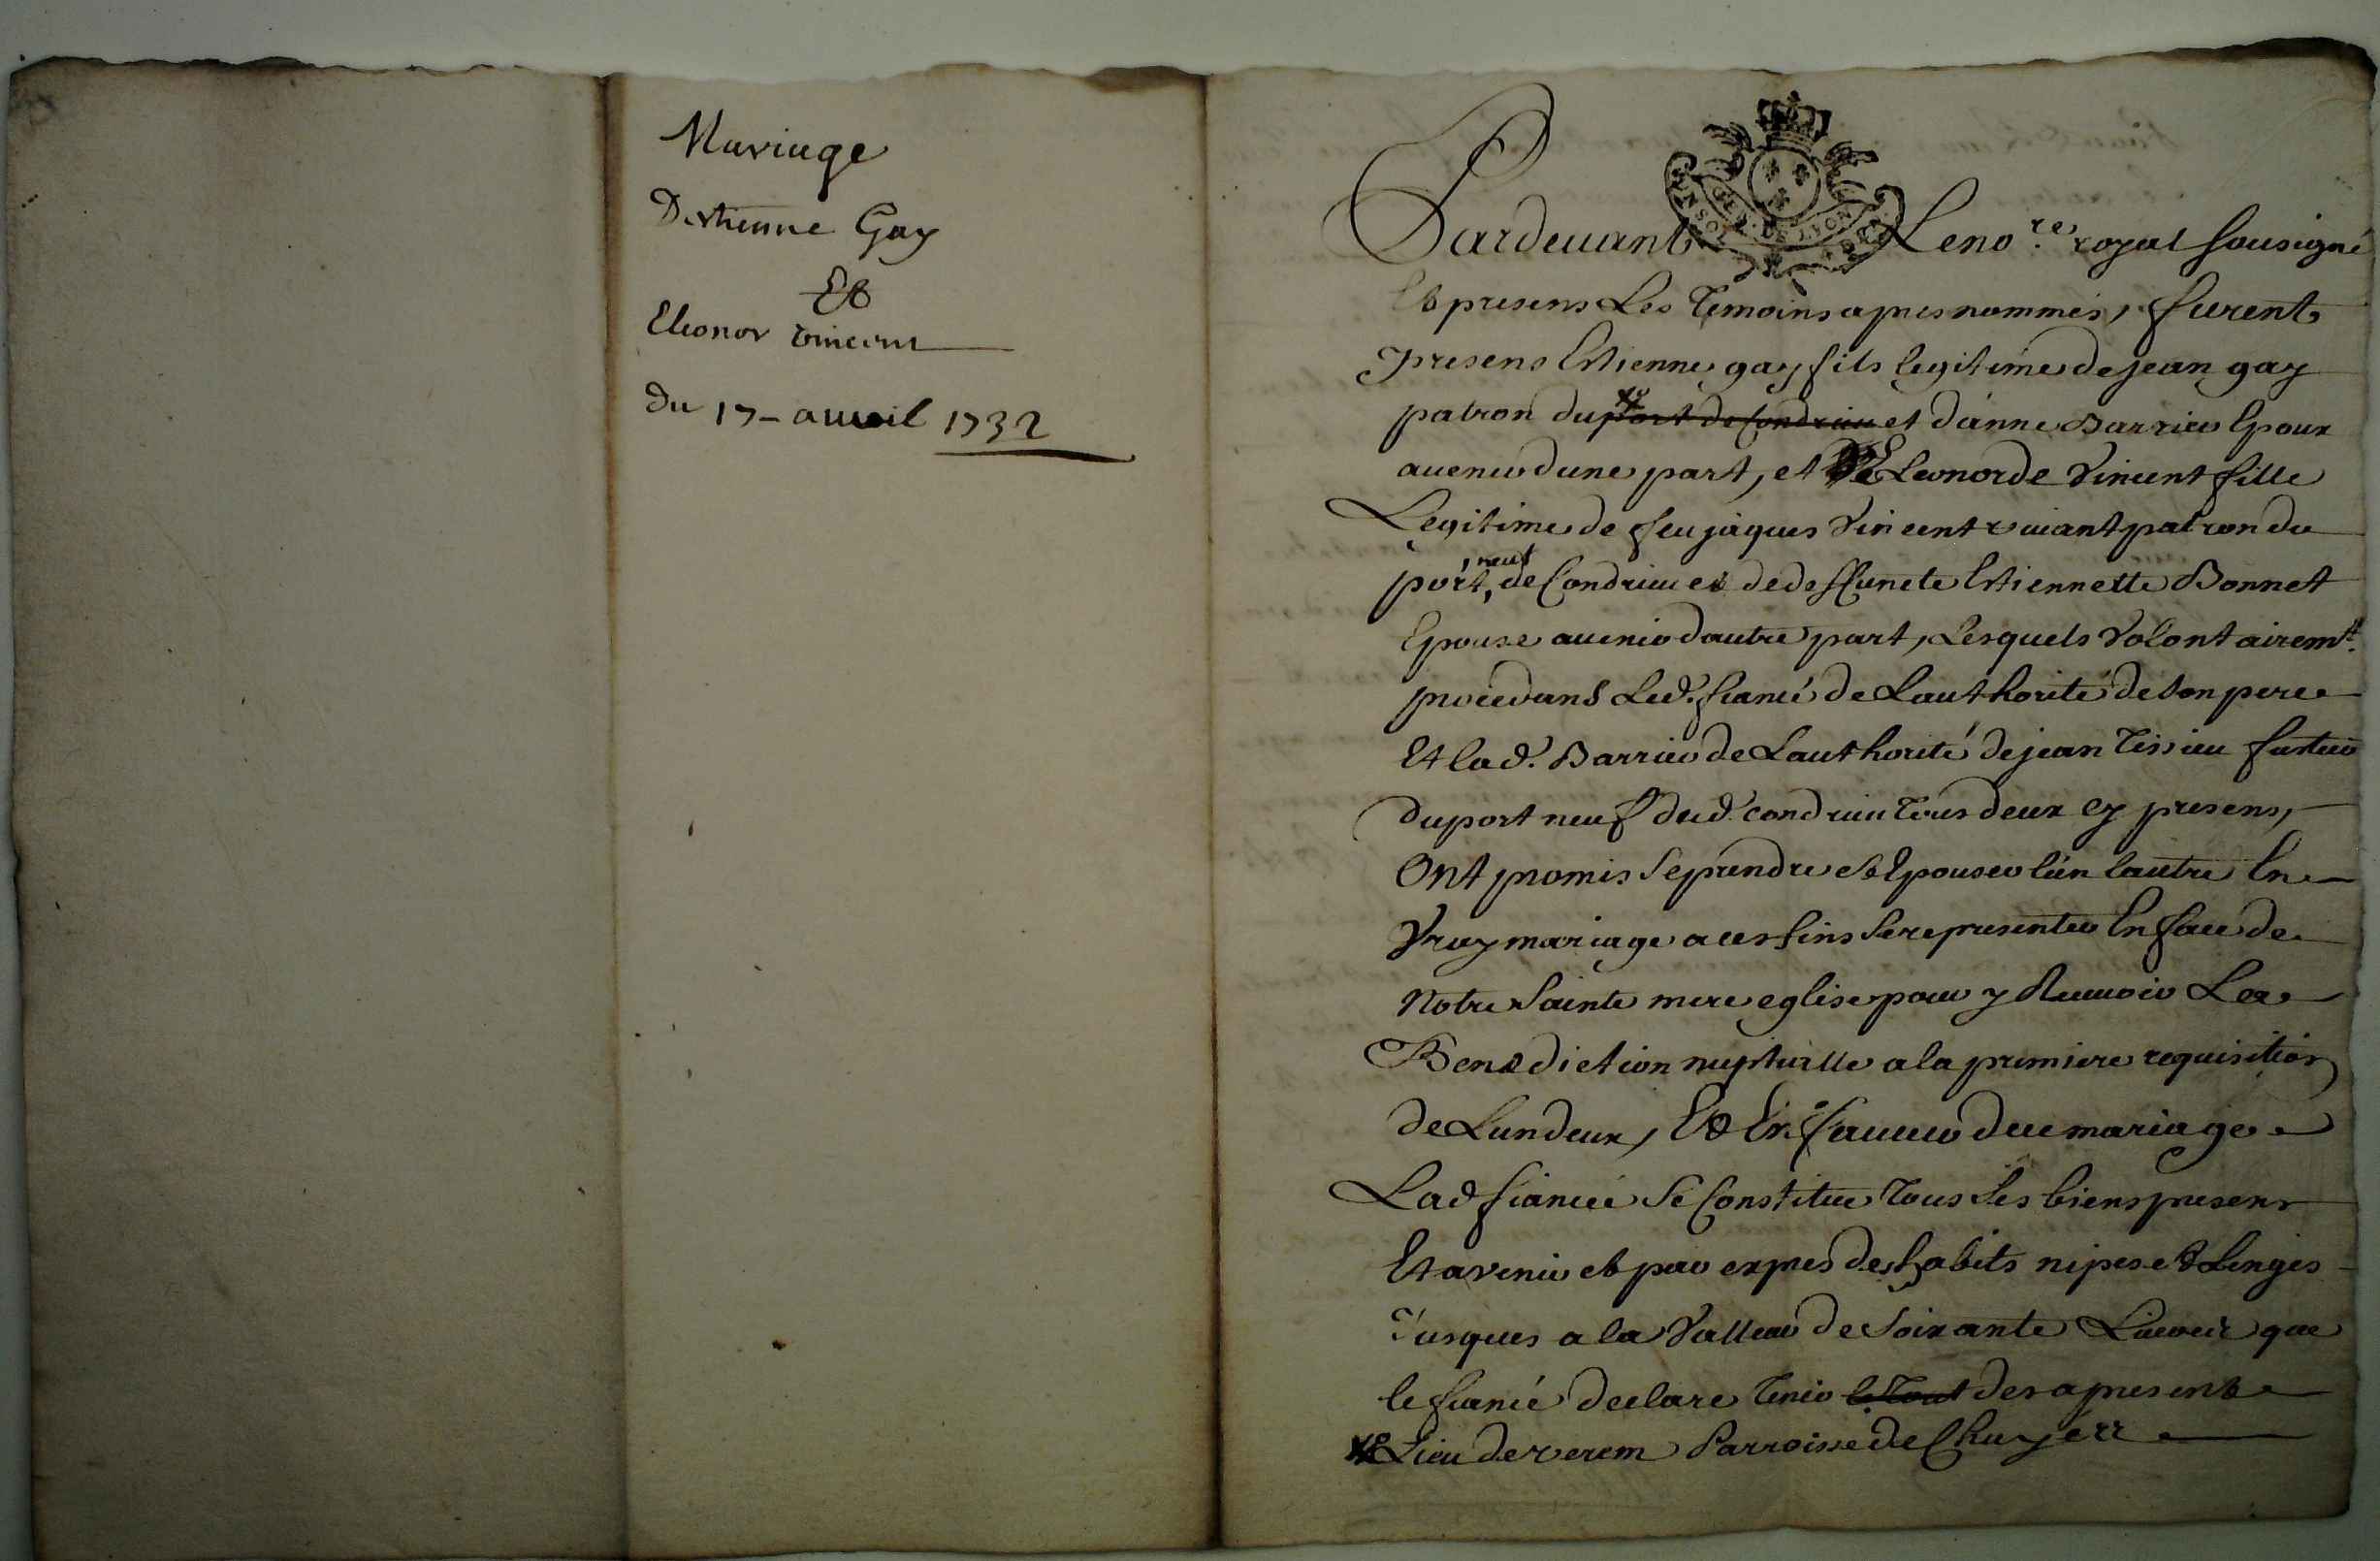 Mariage
D'estienne Gay
Et
Eleonor vincent
du 17 - auril 1732
GEN. DE LYON
Pardeuant Le no.re royal sousigné
Et presens Les temoins apres nommés, furent
presens Estienne gay fils legitime de jean gay
patron du port de Condrieu et d'anne Barrier Epoux
auenir dune part, et Eleonor de Vincent fille
Legitime de feu jâques Vincent viuant patron du
port, neuf de Condrieu et de deffuncte Estiennette Bonnet
Epouse auenir dautre part, Lesquels Volontairemt.
procedans Led. fiancé de Lauthorité de son pere
Et lad. Barrier de Lauthorité de jean Tissieu
du port neuf dud. condrieu tous deux cy presens,
Ont promis se prendre et Epouser lún lautre En
Vray mariage a ces fins se representer En face de
Notre Sainte mere eglise pour y Receuoir La
Benediction nuptialle a la premiere requisition
de Lun deux, Et En faueur du ce mariage
Lad fiancée se Constitue tous ses biens presens
Et avenir et par expres des habits nipes et Linges
Jusques a la Valleur de soixante Liures que
le fiancé declare tenir le tout des apresent
Lieu de verem Parroisse de Chuyerr